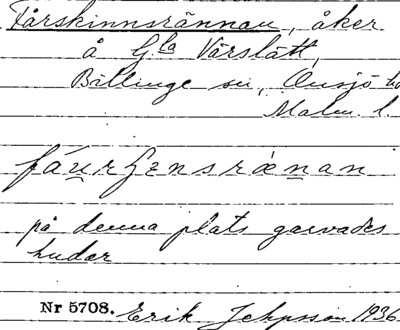 Fårskinnsrännan, åker
å G:la Vårslätt,
Billinge sn, Onsjö hd
Malm. l.
fáurʃɛnsrænan
på denna plats garvades
hudar
Nr 5708. Erik Jepsson 1936